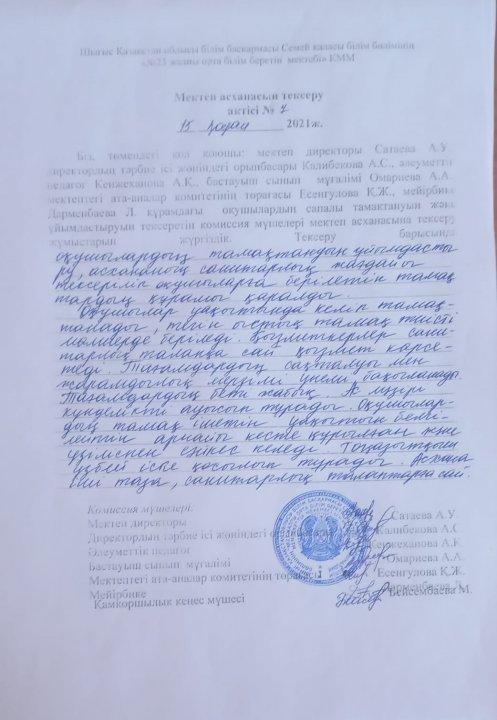 Шығыс Қазақстан облысы білім басқармасы Семей қаласы білім бөлімінің
«№23 жалпы орта білім беретін мектебі» КММ
Мектеп асханасын тексеру
актісі № 7
15 қараша 2021ж.
Біз, төмендегі қол қоюшы: мектеп директоры Сатаева А.У.
директордың тәрбие ісі жөніндегі орынбасары Калибекова А.С., әлеуметтік
педагог Кенжеханова А.Қ., бастауыш сынып мұғалімі Омариева А.А.
мектептегі ата-аналар комитетінің төрағасы Есенгулова Қ.Ж., мейірбике
Дарменбаева Л. құрамдағы оқушылардың сапалы тамақтануын және
ұйымдастыруын тексеретін комиссия мүшелері мектеп асханасына тексеру
жұмыстарын жүргіздік. Тексеру барысында
оқушылардың тамақтандын ұйымдасты
ру, асхананың санитарлық жағдайы
тексеріліп оқушыларға берілетін тамақ
тардың құрамы қаралды.
Оқушылар уақытында келіп тамақ-
танады, тегін ыстық тамақ тиісті
мөлшерде беріледі. Қызметкерлер сани-
тарлық талапқа сай қызмет көрсе-
теді. Тағамдардың сақталуы мен
жарамдылық мерзімі үнемі бақыланады.
Тағамдардың беті жабық. Ас мәзірі
күнделікті ауысып тұрады. Оқушылар-
дың тамақ ішетін уақытын белгі-
лейтін арнайы кесте құрылған және
үзіліспен сәйкес келеді. Тоңазытқыш
үзбей іске қосылып тұрады. Асхана
іші таза, санитарлық талаптарға сай.
Комиссия мүшелері:
Мектеп директоры Сатаева А.У.
Директордың тәрбие ісі жөніндегі орынбасары Калибекова А.С
Әлеуметтік педагог Кенжеханова А.Қ.
Бастауыш сынып мұғалімі Омариева А.А.
Мектептегі ата-аналар комитетінің төрағасы Есенгулова Қ.Ж.
Мейірбике Дарменбаева Л.
Қамқоршылық кеңес мүшесі Бейсембаева М.